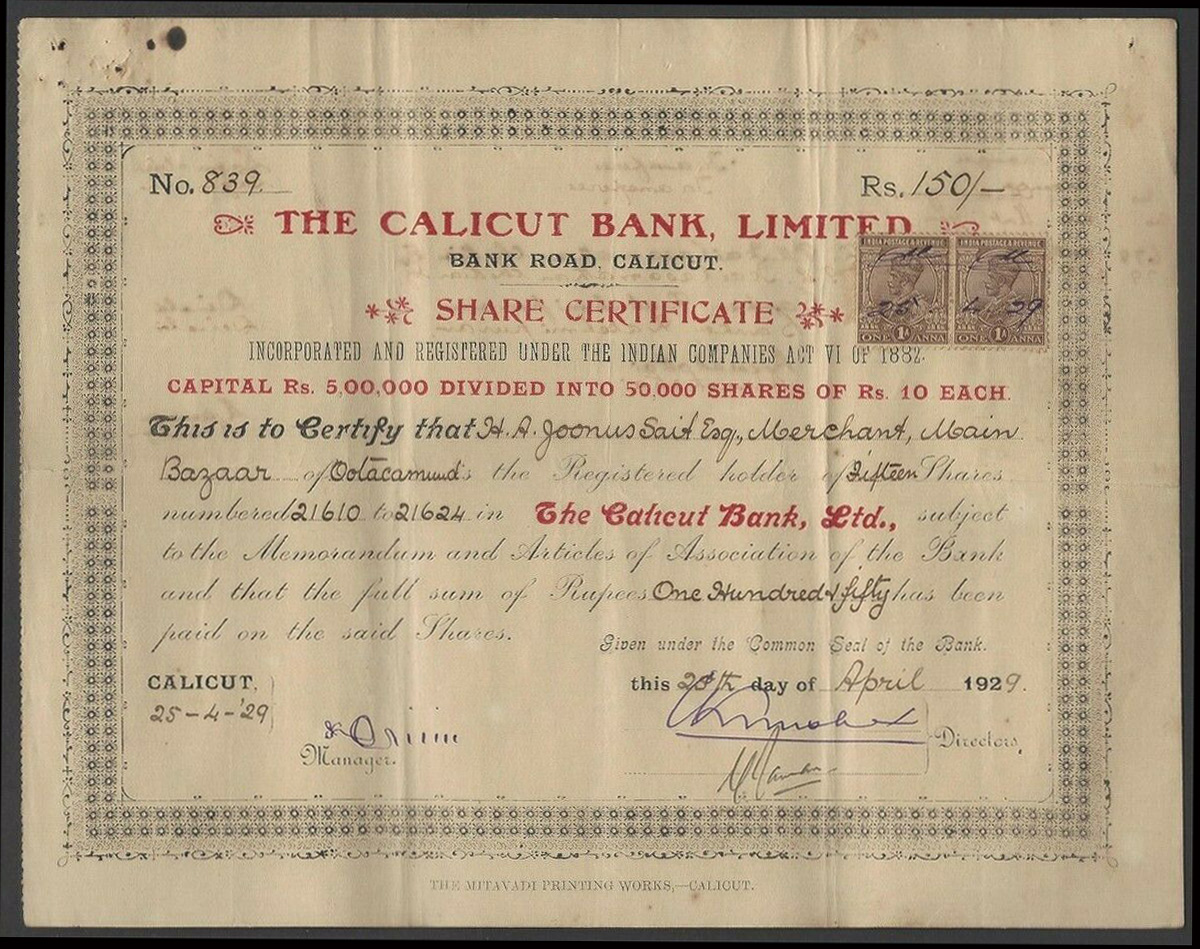 No. 839. Rs. 150/-
THE CALICUT BANK, LIMITED
BANK ROAD, CALICUT.
INDIA POSTAGE & REVENUE INDIA POSTAGE & REVENUE
25 4 29
ONE 1A ANNA ONE 1A ANNA
SHARE CERTIFICATE
INCORPORATED AND REGISTERED UNDER THE INDIAN COMPANIES ACT VI OF 1882.
CAPITAL Rs. 5,00,000 DIVIDED INTO 50,000 SHARES OF Rs. 10 EACH.
This is to Certify that H. A. Joonus Sait Esq., Merchant, Main
Bazaar of Ootacamund is the Registered holder of Fifteen Shares
numbered 21610 to 21624 in The Calicut Bank, Ltd., subject
to the Memorandum and Articles of Association of the Bank
and that the full sum of Rupees One Hundred & fifty has been
paid on the said Shares.
Given under the Common Seal of the Bank.
CALICUT, this 25th day of April 1929.
25-4-'29
Manager.
Directors,
THE MITAVADI PRINTING WORKS,—CALICUT.